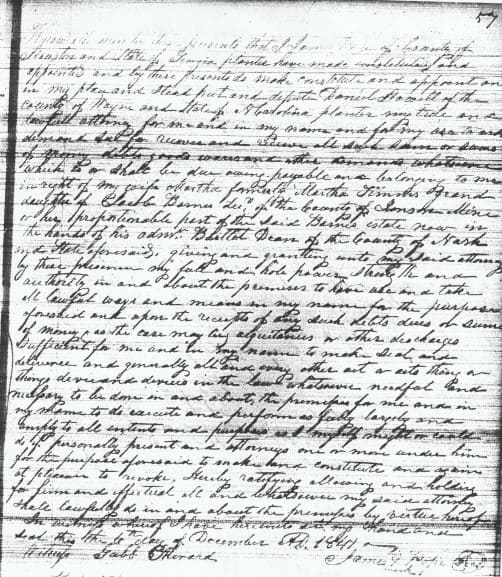 57
Know all men by these presents that I James Pope of County of
Houston and State of Georgia planter have made constituted and
appointed and by these presents do make constitute and appoint and
in my place and stead put and depute Daniel Howell of the
county of Wayne and State of N Carolina planter my true and
lawful attny for me and in my name and for my use to ask
demand sue for recover and receive all such sum or sums
of money debts goods wares and other demands whatsoever
which is or shall be due owing payable and belonging to me
in right of my wife Martha formerly Martha Grand
daughter of Jacob Barnes Decd of the County of
or her proportionable part of the said Barnes estate now in
the hands of his admr. Bartlet Dean of the County of Nash
and State aforesaid, giving and granting unto my said attorney
by these presence my full and hole power, strength and
authority in and about the premises to have use and take
all lawful ways and means in my name for the purposes
aforesaid and upon the receipts of any such debts dues or sums
of money as the case may be acquitances or other discharges
sufficient for me and in my name to make seal and
deliver and generally all and every other act or acts thing or
things device and devices in the law whatsoever needful and
necessary to be don in and about the premises for me and in
my name to do execute and perform as fully largely and
amply to all intents and purposes as I myself might or could
do if personally present and attorneys one or more under him
for the purpose aforesaid to make and constitute and again
at pleasure to revoke, Hereby ratifying allowing and holding
for firm and effectual all and whatsoever my said attorney
shall lawfully do in and about the premises by virtue hereof
In witness whereof I have hereunto set my hand and
seal this the 6th day of December AD. 1841
James Pope